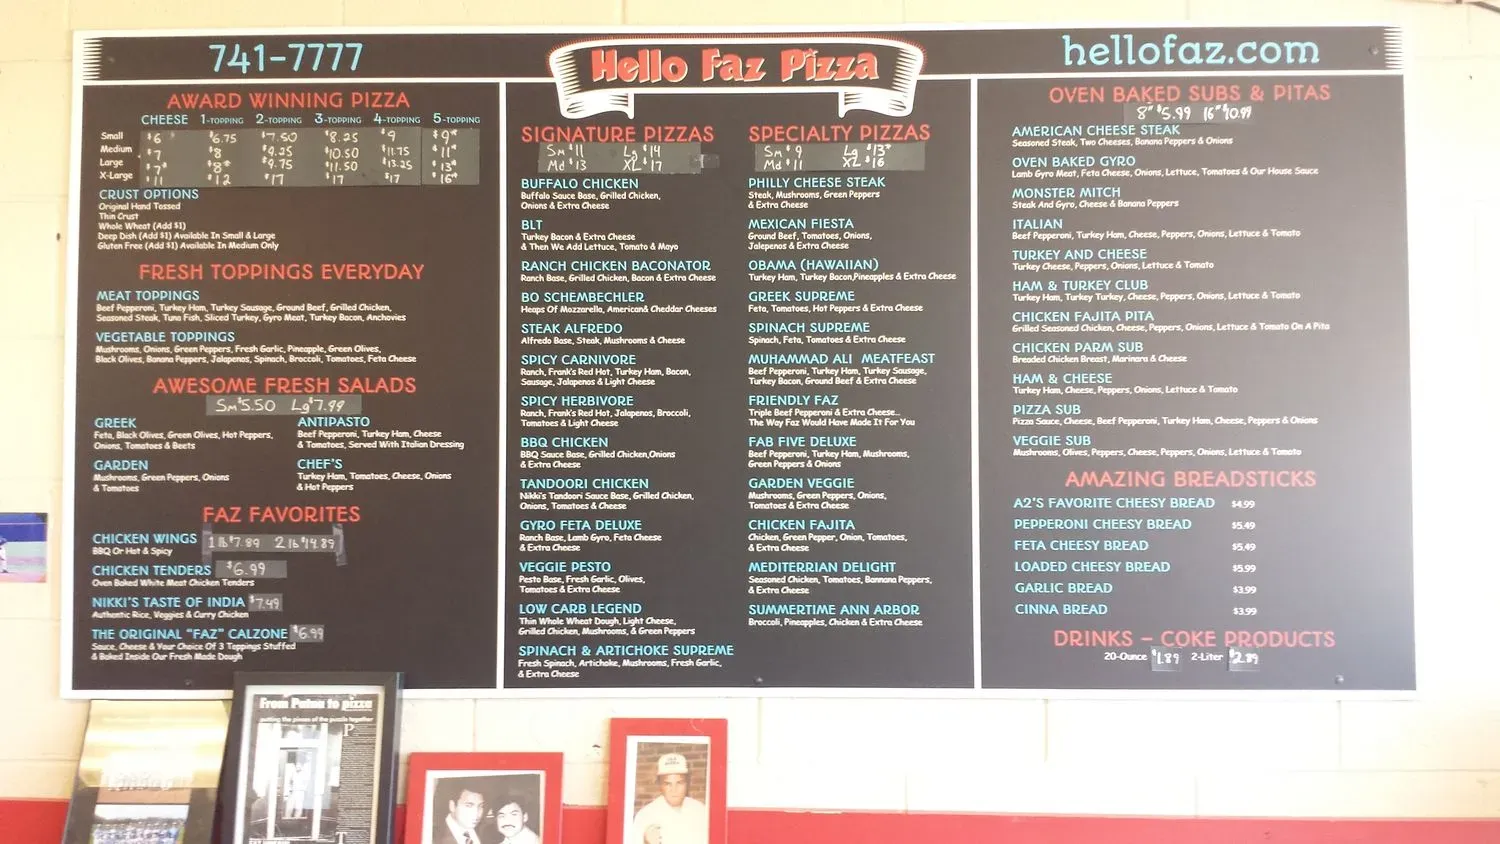 741-7777
Hello Faz Pizza
hellofaz.com
AWARD WINNING PIZZA
CHEESE 1-TOPPING 2-TOPPING 3-TOPPING 4-TOPPING 5-TOPPING
Small $6 $6.75 $7.50 $8.25 $9
Medium $7 $8 $9.25 $10.50 $11.75
Large $9.75 $11.50 $13.25
X-Large $11 $12 $17 $17 $17
CRUST OPTIONS
Original Hand Tossed
Thin Crust
Whole Wheat (Add $1)
Deep Dish (Add $1) Available In Small & Large
Gluten Free (Add $1) Available In Medium Only
FRESH TOPPINGS EVERYDAY
MEAT TOPPINGS
Beef Pepperoni, Turkey Ham, Turkey Sausage, Ground Beef, Grilled Chicken,
Seasoned Steak, Tuna Fish, Sliced Turkey, Gyro Meat, Turkey Bacon, Anchovies
VEGETABLE TOPPINGS
Mushrooms, Onions, Green Peppers, Fresh Garlic, Pineapple, Green Olives,
Black Olives, Banana Peppers, Jalapenos, Spinach, Broccoli, Tomatoes, Feta Cheese
AWESOME FRESH SALADS
Sm $5.50 Lg $7.99
GREEK
Feta, Black Olives, Green Olives, Hot Peppers,
Onions, Tomatoes & Beets
ANTIPASTO
Beef Pepperoni, Turkey Ham, Cheese
& Tomatoes, Served With Italian Dressing
GARDEN
Mushrooms, Green Peppers, Onions
& Tomatoes
CHEF'S
Turkey Ham, Tomatoes, Cheese, Onions
& Hot Peppers
FAZ FAVORITES
CHICKEN WINGS 1 lb $7.89 2 lb $14.89
BBQ Or Hot & Spicy
CHICKEN TENDERS $6.99
Oven Baked White Meat Chicken Tenders
NIKKI'S TASTE OF INDIA $7.49
Authentic Rice, Veggies & Curry Chicken
THE ORIGINAL "FAZ" CALZONE $6.99
Sauce, Cheese & Your Choice Of 3 Toppings Stuffed
& Baked Inside Our Fresh Made Dough
SIGNATURE PIZZAS
Sm $11 Lg $14
Md $13 XL $17
BUFFALO CHICKEN
Buffalo Sauce Base, Grilled Chicken,
Onions & Extra Cheese
BLT
Turkey Bacon & Extra Cheese
& Then We Add Lettuce, Tomato & Mayo
RANCH CHICKEN BACONATOR
Ranch Base, Grilled Chicken, Bacon & Extra Cheese
BO SCHEMBECHLER
Heaps Of Mozzarella, American& Cheddar Cheeses
STEAK ALFREDO
Alfredo Base, Steak, Mushrooms & Cheese
SPICY CARNIVORE
Ranch, Frank's Red Hot, Turkey Ham, Bacon,
Sausage, Jalapenos & Light Cheese
SPICY HERBIVORE
Ranch, Frank's Red Hot, Jalapenos, Broccoli,
Tomatoes & Light Cheese
BBQ CHICKEN
BBQ Sauce Base, Grilled Chicken,Onions
& Extra Cheese
TANDOORI CHICKEN
Nikki's Tandoori Sauce Base, Grilled Chicken,
Onions, Tomatoes & Cheese
GYRO FETA DELUXE
Ranch Base, Lamb Gyro, Feta Cheese
& Extra Cheese
VEGGIE PESTO
Pesto Base, Fresh Garlic, Olives,
Tomatoes & Extra Cheese
LOW CARB LEGEND
Thin Whole Wheat Dough, Light Cheese,
Grilled Chicken, Mushrooms, & Green Peppers
SPINACH & ARTICHOKE SUPREME
Fresh Spinach, Artichoke, Mushrooms, Fresh Garlic,
& Extra Cheese
SPECIALTY PIZZAS
Sm $9 Lg $13
Md $11 XL $16
PHILLY CHEESE STEAK
Steak, Mushrooms, Green Peppers
& Extra Cheese
MEXICAN FIESTA
Ground Beef, Tomatoes, Onions,
Jalepenos & Extra Cheese
OBAMA (HAWAIIAN)
Turkey Ham, Turkey Bacon,Pineapples & Extra Cheese
GREEK SUPREME
Feta, Tomatoes, Hot Peppers & Extra Cheese
SPINACH SUPREME
Spinach, Feta, Tomatoes & Extra Cheese
MUHAMMAD ALI MEATFEAST
Beef Pepperoni, Turkey Ham, Turkey Sausage,
Turkey Bacon, Ground Beef & Extra Cheese
FRIENDLY FAZ
Triple Beef Pepperoni & Extra Cheese...
The Way Faz Would Have Made It For You
FAB FIVE DELUXE
Beef Pepperoni, Turkey Ham, Mushrooms,
Green Peppers & Onions
GARDEN VEGGIE
Mushrooms, Green Peppers, Onions,
Tomatoes & Extra Cheese
CHICKEN FAJITA
Chicken, Green Pepper, Onion, Tomatoes,
& Extra Cheese
MEDITERRIAN DELIGHT
Seasoned Chicken, Tomatoes, Bannana Peppers,
& Extra Cheese
SUMMERTIME ANN ARBOR
Broccoli, Pineapples, Chicken & Extra Cheese
OVEN BAKED SUBS & PITAS
8" $5.99 16" $10.99
AMERICAN CHEESE STEAK
Seasoned Steak, Two Cheeses, Banana Peppers & Onions
OVEN BAKED GYRO
Lamb Gyro Meat, Feta Cheese, Onions, Lettuce, Tomatoes & Our House Sauce
MONSTER MITCH
Steak And Gyro, Cheese & Banana Peppers
ITALIAN
Beef Pepperoni, Turkey Ham, Cheese, Peppers, Onions, Lettuce & Tomato
TURKEY AND CHEESE
Turkey Cheese, Peppers, Onions, Lettuce & Tomato
HAM & TURKEY CLUB
Turkey Ham, Turkey Turkey, Cheese, Peppers, Onions, Lettuce & Tomato
CHICKEN FAJITA PITA
Grilled Seasoned Chicken, Cheese, Peppers, Onions, Lettuce & Tomato On A Pita
CHICKEN PARM SUB
Breaded Chicken Breast, Marinara & Cheese
HAM & CHEESE
Turkey Ham, Cheese, Peppers, Onions, Lettuce & Tomato
PIZZA SUB
Pizza Sauce, Cheese, Beef Pepperoni, Turkey Ham, Cheese, Peppers & Onions
VEGGIE SUB
Mushrooms, Olives, Peppers, Cheese, Peppers, Onions, Lettuce & Tomato
AMAZING BREADSTICKS
A2'S FAVORITE CHEESY BREAD $4.99
PEPPERONI CHEESY BREAD $5.49
FETA CHEESY BREAD $5.49
LOADED CHEESY BREAD $5.99
GARLIC BREAD $3.99
CINNA BREAD $3.99
DRINKS – COKE PRODUCTS
20-Ounce $1.89 2-Liter $2.89
From Patna to pizza
putting the pieces of the puzzle together